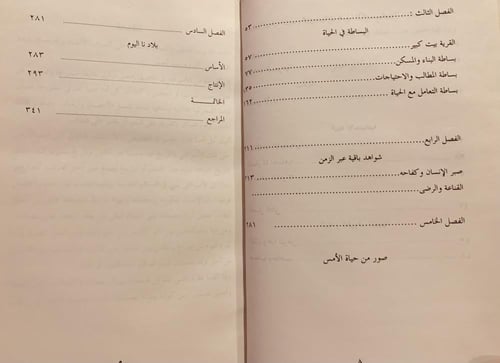 الفصل الثالث : ٥٣
البساطة في الحياة
القرية بيت كبير ٥٧
بساطة البناء والمسكن ٧٧
بساطة المطالب والاحتياجات
بساطة التعامل مع الحياة
الفصل الرابع ٢١١
شواهد باقية عبر الزمن
صبر الإنسان وكفاحه ٢١٣
القناعة والرضى
الفصل الخامس ٢٨١
صور من حياة الأمس
٨
الفصل السادس ٢٨١
بلاد نا اليوم
الأساس ٢٨٣
الإنتاج ٢٩٣
الخاتمـة
المراجع ٣٤١